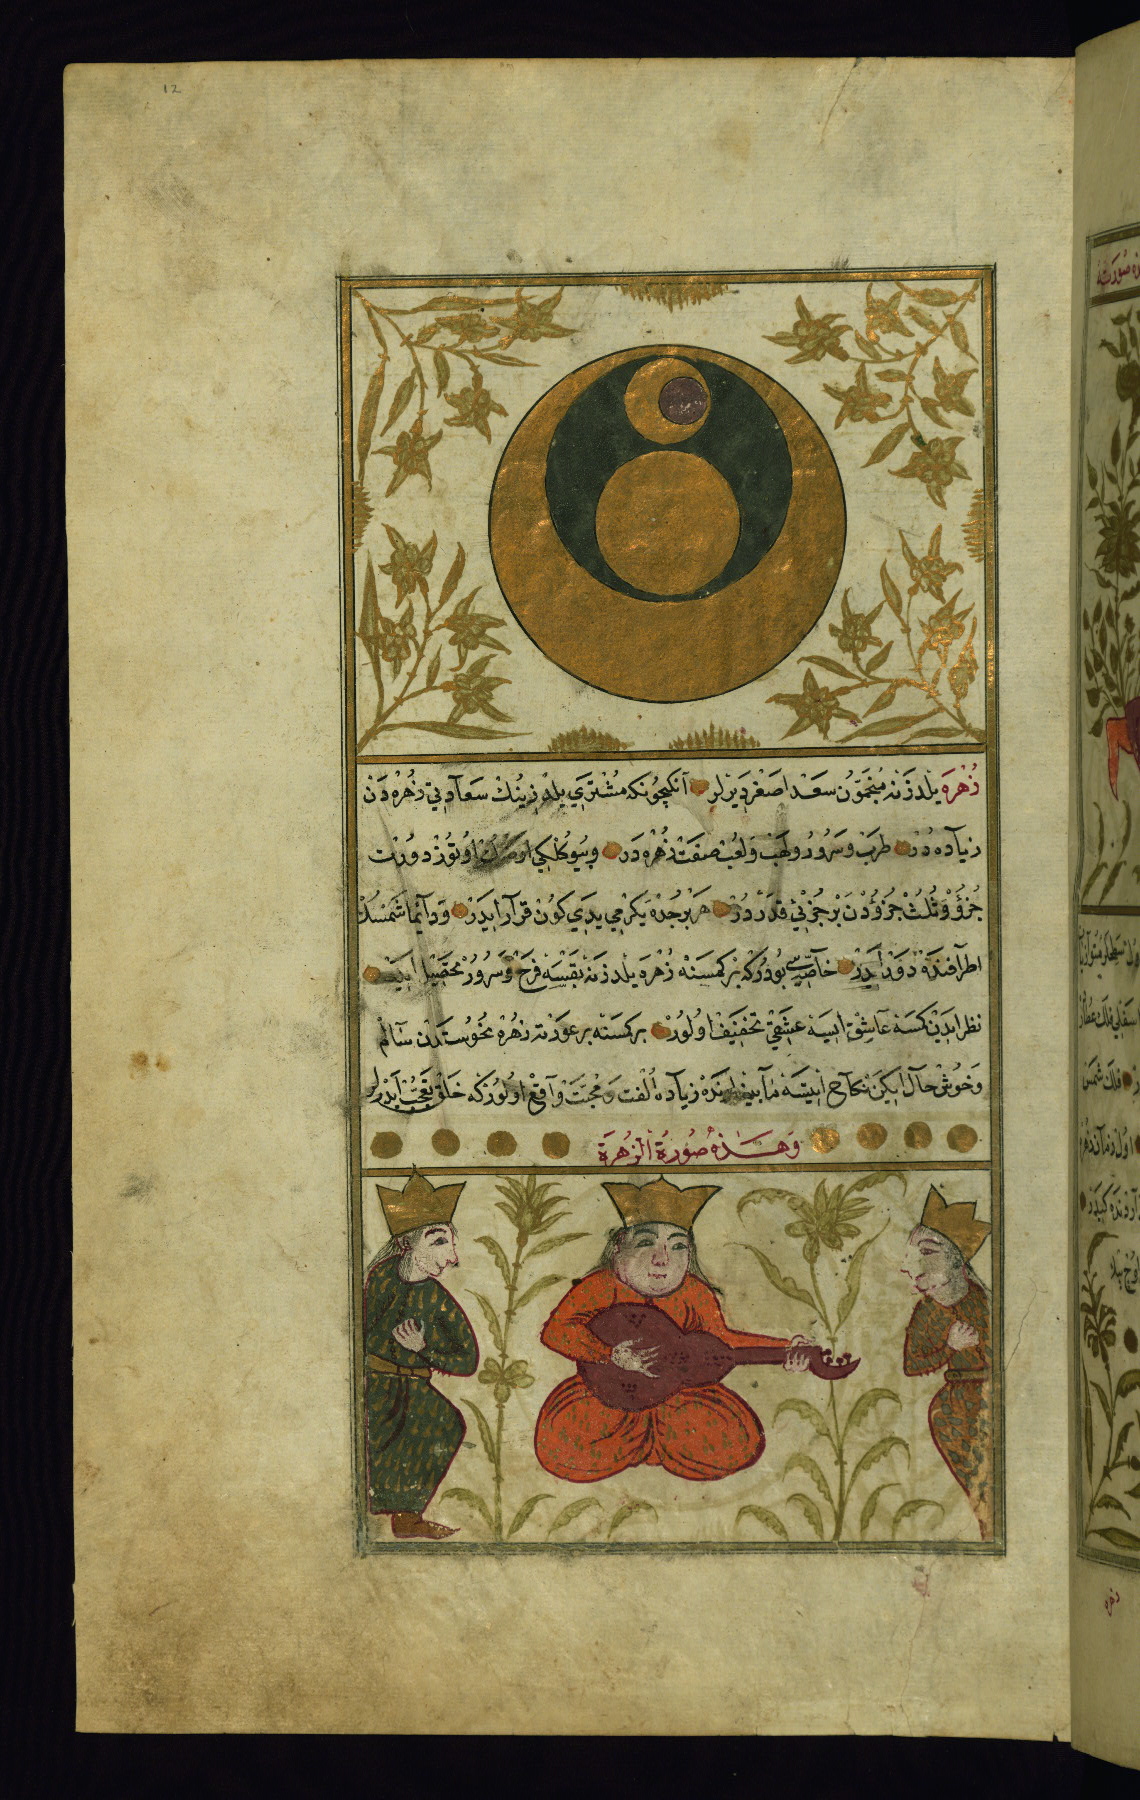 12
زُهْرَه يِلْدِزِنَه مُنَجِّمُون سَعْد اَصْغَر دَيِرْلَرْ آنكِچُونكِه مُشْتَرِي يِلْدِزِينُكْ سَعَادَتِي زُهْرَه دَنْ
زيَاده دُرْ طَرَبْ و سُرُورْ و لَهْبْ وَلَعْبْ صِفَتْ زُهْرَه دَر وبُيُوكْلكِي اوتُوز دورْت
جُزْؤ وَثُلُثْ جُزْؤدَنْ بَرْ جُزْئِي قَدَرْ دُرْ هَرْ بُرْجُدَه يِكِرْمِي يدِي كُونْ قَرَارْ ايدَرْ وَدَآئِمَا شَمْسُكْ
اطرافِنْدَه دَوْر ايدَرْ خَاصِّيَتِي بُودُرْكِه بَرْ كِمْسَنَه زُهْرَه يِلْدِزِنَه بَقْسَه فَرَحْ وَسُرُورْ تَحْصِيل ايدَرْ
نظر ايدَنْ كَسَنَه عَاشِقْ ايسَه عِشْقِي تَخْفِيف اولُورْ بر كسنه بر عورته زُهْرَه نُحُوسَتدَنْ سَآلِمْ
وَخُوشْ حَآلْ ايكَنْ نِكَاحْ ايتسَه مَابَيْنلرنده زيَاده اُلْفَت وَ مُحَبَّتْ وَاقِعْ اولُورْكه خَلْقْ تَعَجُّبْ ايدَرْلَر
وَهَذِهِ صُورَةُ الزُهرَة